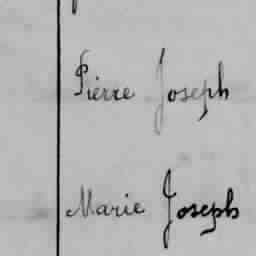 Pierre Joseph
Marie Joseph